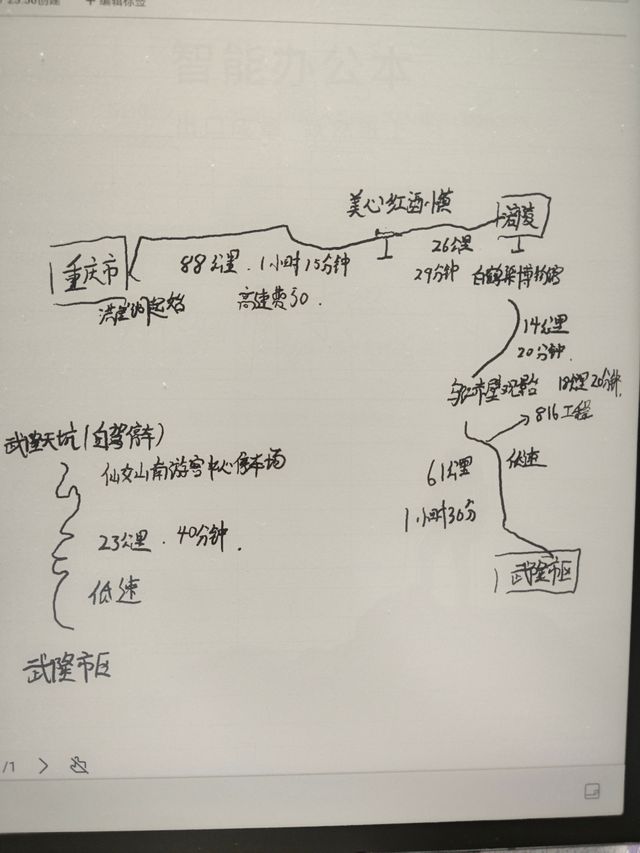 23:36创建 + 编辑标签
智能办公本
美心红酒小镇
涪陵
重庆市
88公里.1小时15分钟
26公里
29分钟
白鹤梁博物馆
洪崖洞起始
高速费30.
14公里
20分钟.
乌江画壁观景台
18公里20分钟.
816工程
武隆天坑(自驾停车)
仙女山南游客中心停车场
61公里
低速
1小时30分
23公里.40分钟.
武隆市区
低速
武隆市区
/1